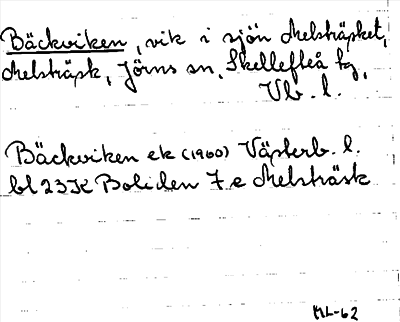 Bäckviken, vik i sjön Melsträsket,
Melsträsk, Jörns sn, Skellefteå tg,
Vb. l.
Bäckviken ek (1960) Västerb. l.
bl 23K Boliden 7e Melsträsk
ML-62